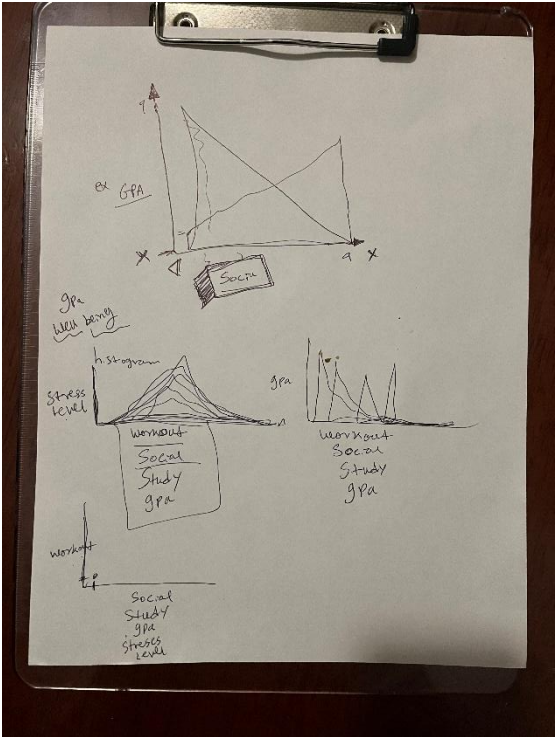 y
ex GPA
X
a X
Social
gpa
Well being
histogram
Stress
level
workout
Social
Study
gpa
gpa
workout
Social
Study
gpa
workout
Social
Study
gpa
stresses
level